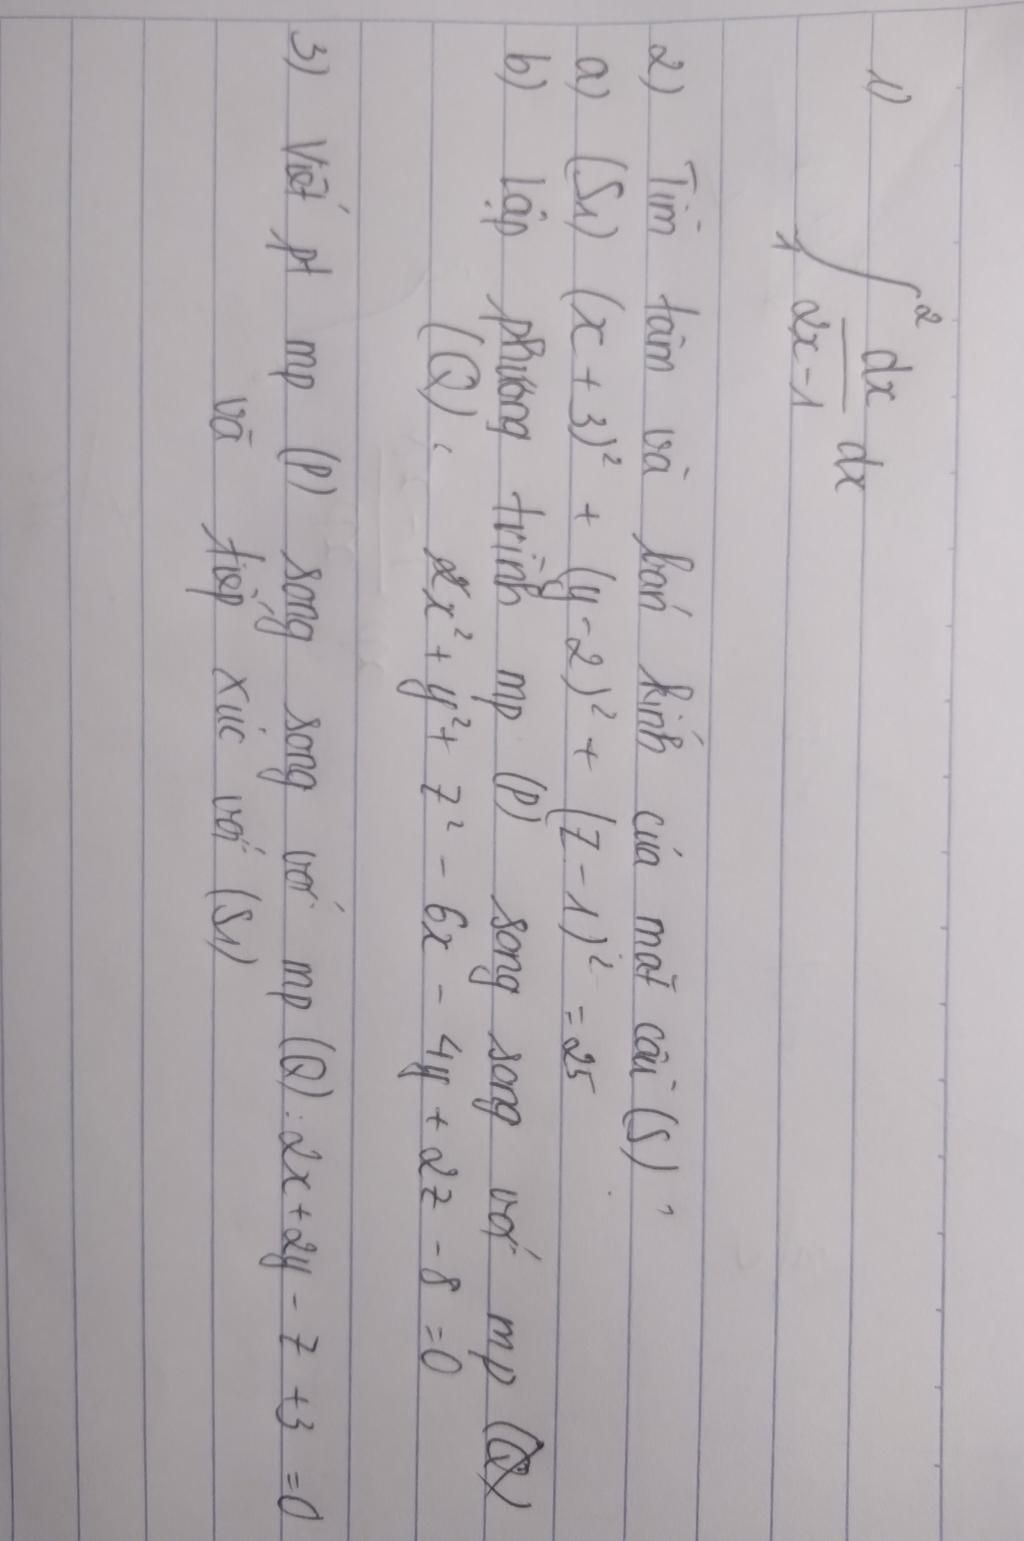 1) ∫₁² dx/(2x-1) dx
2) Tìm tâm và bán kính của mặt cầu (S),
a) (S1) (x + 3)² + (y - 2)² + (z - 1)² = 25
b) lập phương trình mp (P) song song với mp (Q)
(Q), x² + y² + z² - 6x - 4y + 2z - 8 = 0
3) Viết pt mp (P) song song với mp (Q): 2x + 2y - z + 3 = 0
và tiếp xúc với (S1)